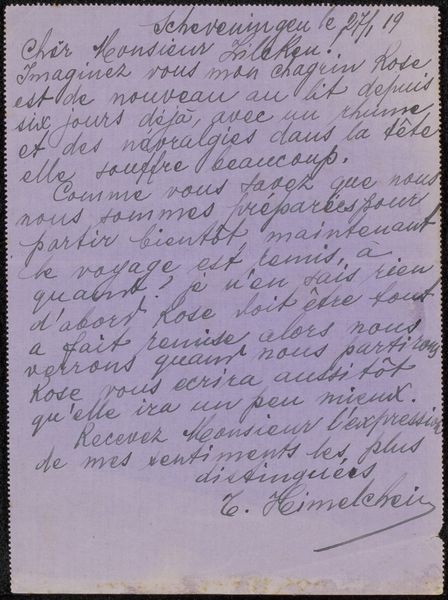 Scheveningen le 27/1 19
Chèr Monsieur Zilcken.
Imaginez vous mon chagrin Rose
est de nouveau au lit depuis
six jours déjà, avec un rhume
et des névralgies dans la tête
elle souffre beaucoup.
Comme vous savez que nous
nous sommes préparées pour
partir bientôt maintenant
le voyage est remis, à
quand? je n'en sais rien
d'abord Rose doit être tout
a fait remise alors nous
verrons quand nous partirons
Rose vous ecrira aussitôt
qu'elle ira un peu mieux.
Recevez Monsieur l'expression
de mes sentiments les plus
distinguées